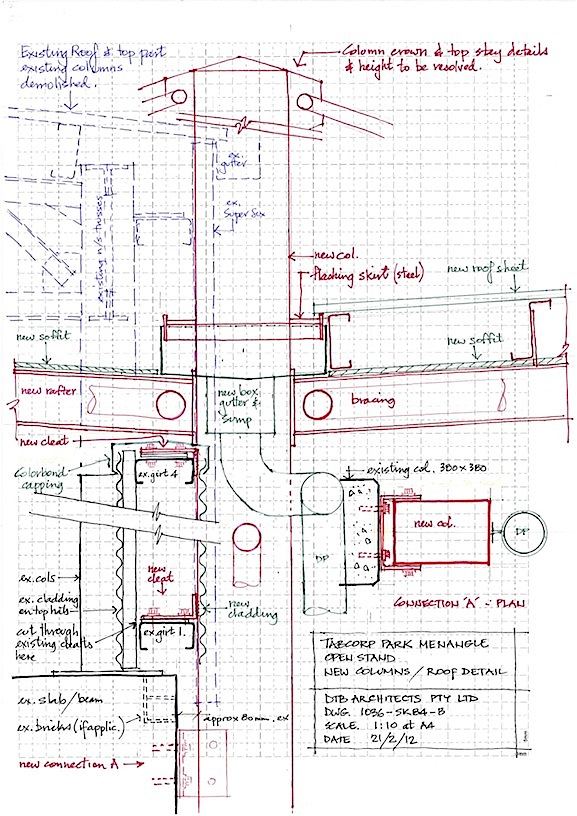 Existing Roof & top part
existing columns
demolished.
Column crown & top stay details
& height to be resolved.
ex.
gutter
ex.
Super Six
existing n/s trusses
new col.
flashing skirt (steel)
new roof sheet
new soffit
new soffit
new rafter
new box
gutter &
sump
bracing
new cleat
Colorbond
capping
ex. girt 4
existing col. 380x380
new col.
DP
DP
new
cleat
ex. cols
ex. cladding
on top hats
cut through
existing cleats
here
ex. girt 1.
new
cladding
CONNECTION 'A' - PLAN
TABCORP PARK MENANGLE
OPEN STAND
NEW COLUMNS / ROOF DETAIL
DTB ARCHITECTS PTY LTD
DWG. 1036-SKB4-B
SCALE. 1:10 at A4
DATE 21/2/12
ex. slab/beam
ex. bricks (if applic.)
approx 80mm. ex
new connection A